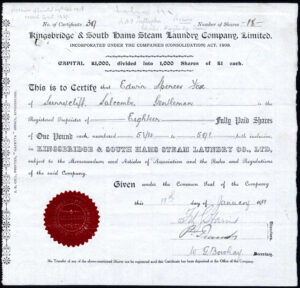 No. of Certificate 39 Number of Shares -18-
Kingsbridge & South Hams Steam Laundry Company, Limited.
INCORPORATED UNDER THE COMPANIES (CONSOLIDATION) ACT, 1908.
CAPITAL, £1,000, DIVIDED INTO 1,000 SHARES OF £1 EACH.
This is to Certify that Edwin Spencer Fox
Sunnycliff, Salcombe, Gentleman is the
Registered Proprietor of Eighteen Fully Paid Shares
of One Pound each, numbered to both inclusive in
KINGSBRIDGE & SOUTH HAMS STEAM LAUNDRY CO., LTD.,
subject to the Memorandum and Articles of Association and the Rules and Regulations
of the said Company.
Given under the Common Seal of the Company
this day of January
Secretary.
No Transfer of any of the above-mentioned Shares can be registered until this Certificate has been deposited at the Office of the Company.